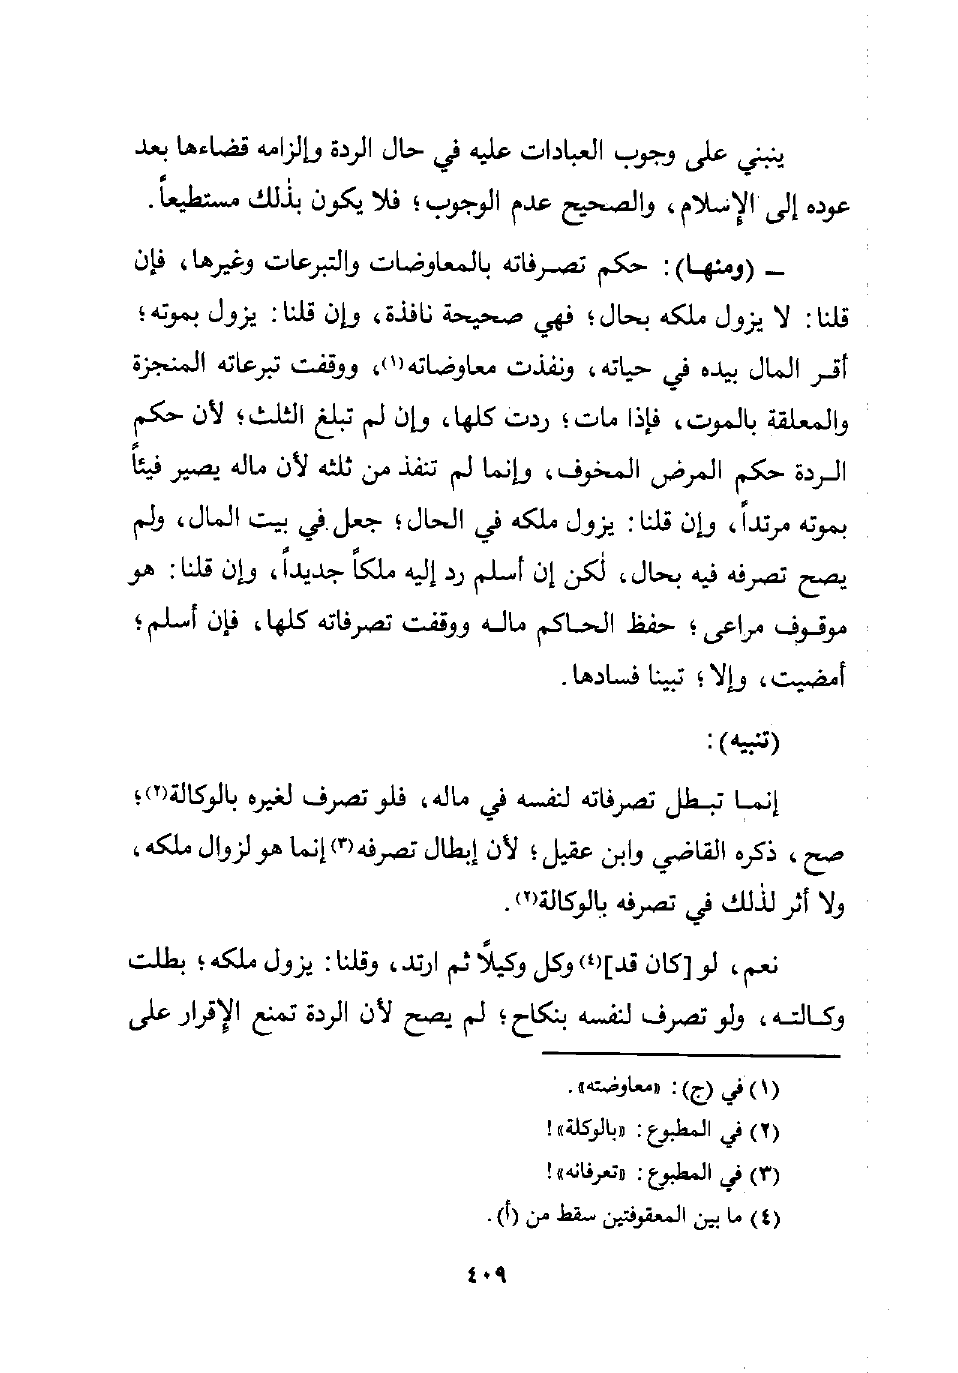 ينبني على وجوب العبادات عليه في حال الردة وإلزامه قضاءها بعد
عوده إلى الإسلام، والصحيح عدم الوجوب؛ فلا يكون بذٰلك مستطيعاً.
ـ (ومنها): حكم تصرفاته بالمعاوضات والتبرعات وغيرها، فإن
قلنا: لا يزول ملكه بحال؛ فهي صحيحة نافذة، وإن قلنا: يزول بموته؛
أقر المال بيده في حياته، ونفذت معاوضاته(١)، ووقفت تبرعاته المنجزة
والمعلقة بالموت، فإذا مات؛ ردت كلها، وإن لم تبلغ الثلث؛ لأن حكم
الردة حكم المرض المخوف، وإنما لم تنفذ من ثلثه لأن ماله يصير فيئاً
بموته مرتداً، وإن قلنا: يزول ملكه في الحال؛ جعل في بيت المال، ولم
يصح تصرفه فيه بحال، لٰكن إن أسلم رد إليه ملكاً جديداً، وإن قلنا: هو
موقوف مراعى؛ حفظ الحاكم ماله ووقفت تصرفاته كلها، فإن أسلم؛
أمضيت، وإلا؛ تبينا فسادها.
(تنبيه):
إنما تبطل تصرفاته لنفسه في ماله، فلو تصرف لغيره بالوكالة(٢)؛
صح، ذكره القاضي وابن عقيل؛ لأن إبطال تصرفه(٣) إنما هو لزوال ملكه،
ولا أثر لذٰلك في تصرفه بالوكالة(٢).
نعم، لو [كان قد](٤) وكل وكيلاً ثم ارتد، وقلنا: يزول ملكه؛ بطلت
وكالته، ولو تصرف لنفسه بنكاح؛ لم يصح لأن الردة تمنع الإقرار على
(١) في (ج): «معاوضته».
(٢) في المطبوع: «بالوكلة»!
(٣) في المطبوع: «تعرفانه»!
(٤) ما بين المعقوفتين سقط من (أ).
٤٠٩